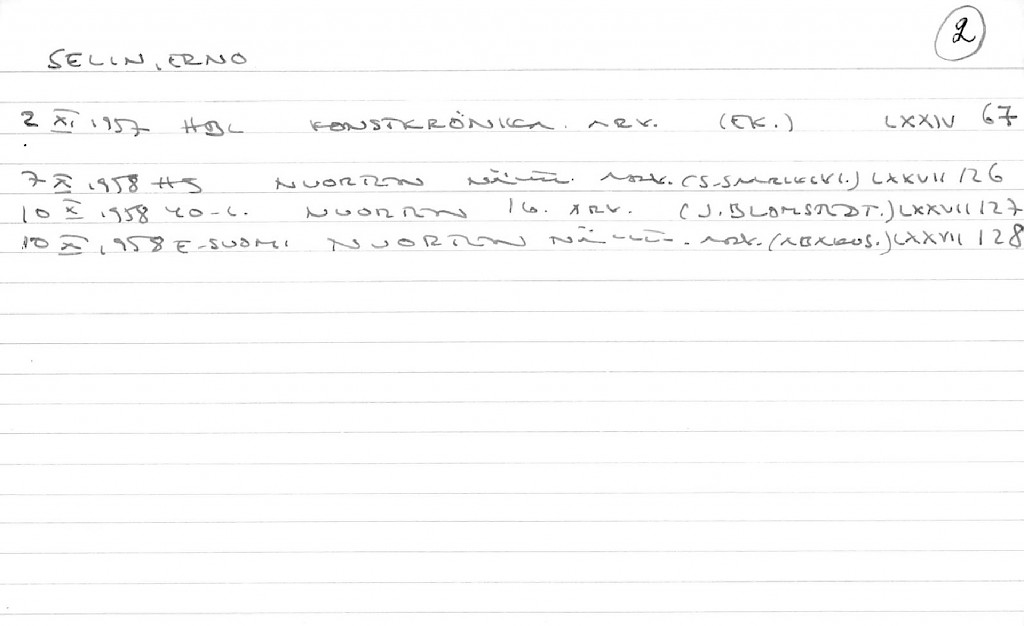 2
SELIN, ERNO
2 XI 1957 HBL KONSTKRÖNIKA. ARV. (EK.) LXXIV 67
7 X 1958 HS NUORTEN NÄYTT. ARV. (S-S) LXXVII 126
10 X 1958 YO-L. NUORTEN 16. ARV. (J. BLOMSTEDT.) LXXVII 127
10 X 1958 E-SUOMI NUORTEN ARV. LXXVII 128